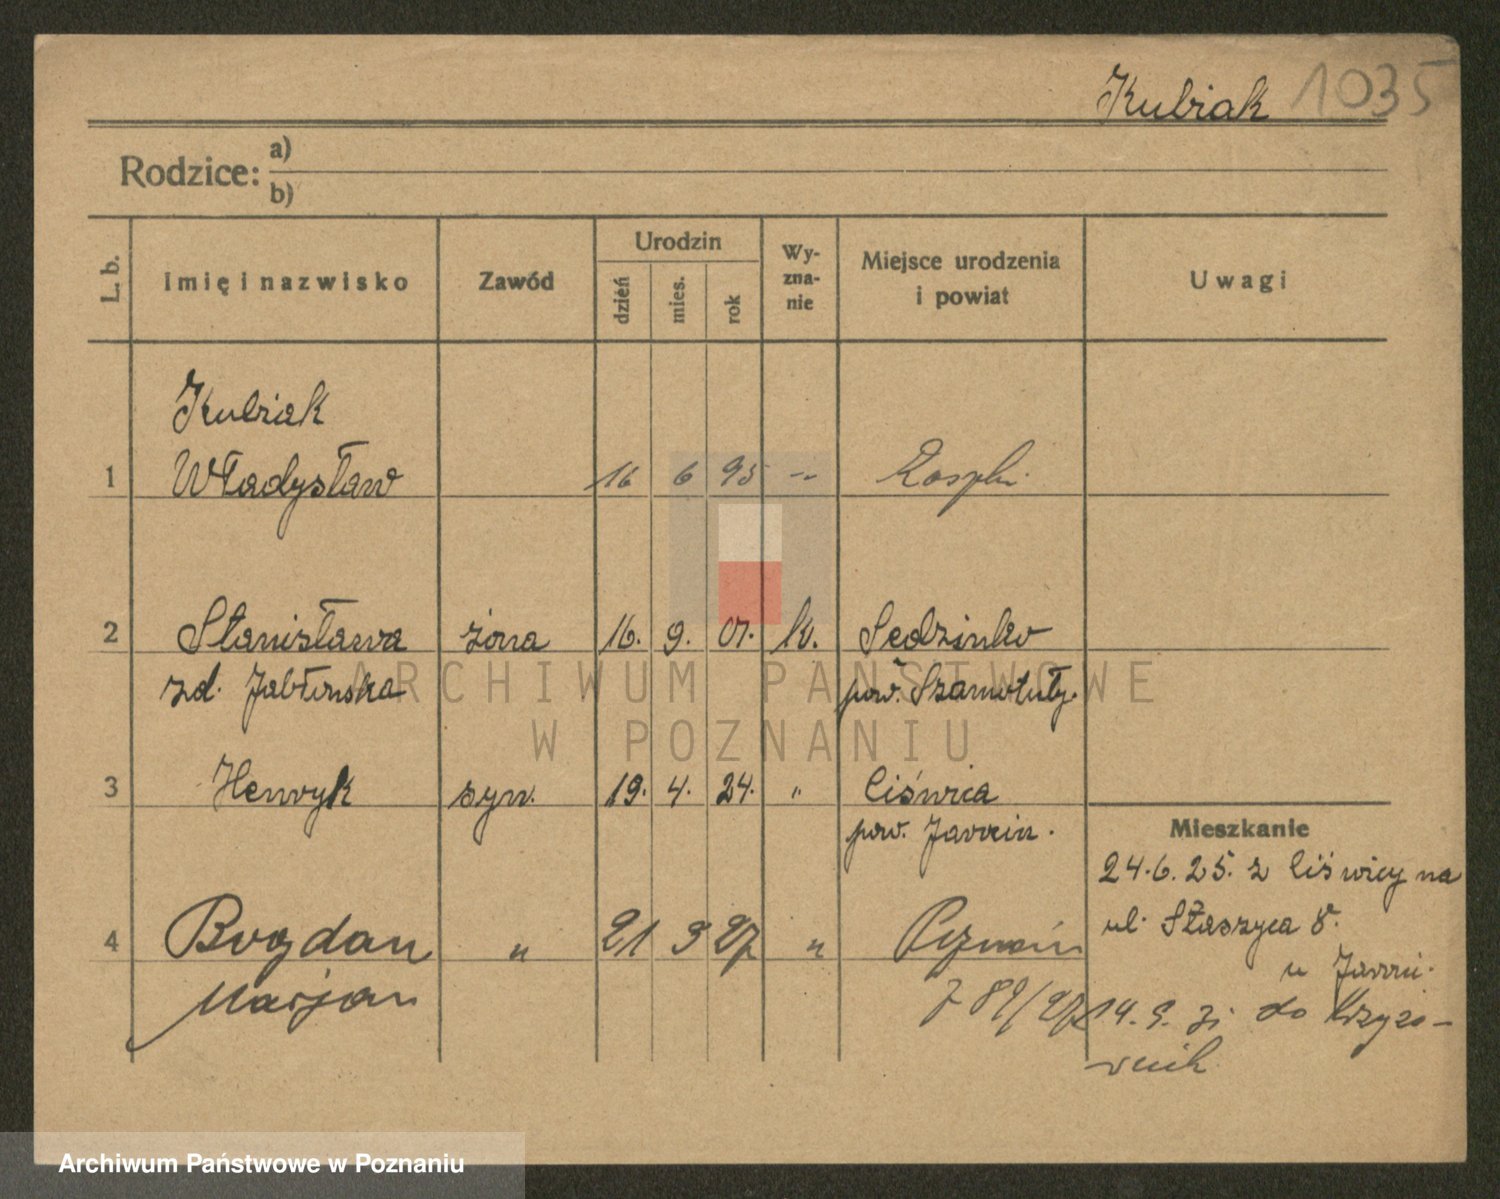 Kubiak 1035
Rodzice: a)
b)
L. b. Imię i nazwisko Zawód Urodzin dzień mies. rok Wy-zna-nie Miejsce urodzenia i powiat Uwagi
Kubiak
1 Władysław 16 6 95 -"-
2 Stanisława żona 16. 9. 01. k. Sedzinko
zd. Jabłonska pow. Szamotuły.
ARCHIWUM PAŃSTWOWE
W POZNANIU
3 Henryk syn. 19. 4. 24. " Ciświca
pow. Jarocin.
Mieszkanie
24.6.25. z Ciświcy na
ul. Staszyca 8.
4 Bogdan " 21 9 27 " Poznań
Marjan 89/27
14. 9. do Krzyżo-
wnik
Archiwum Państwowe w Poznaniu